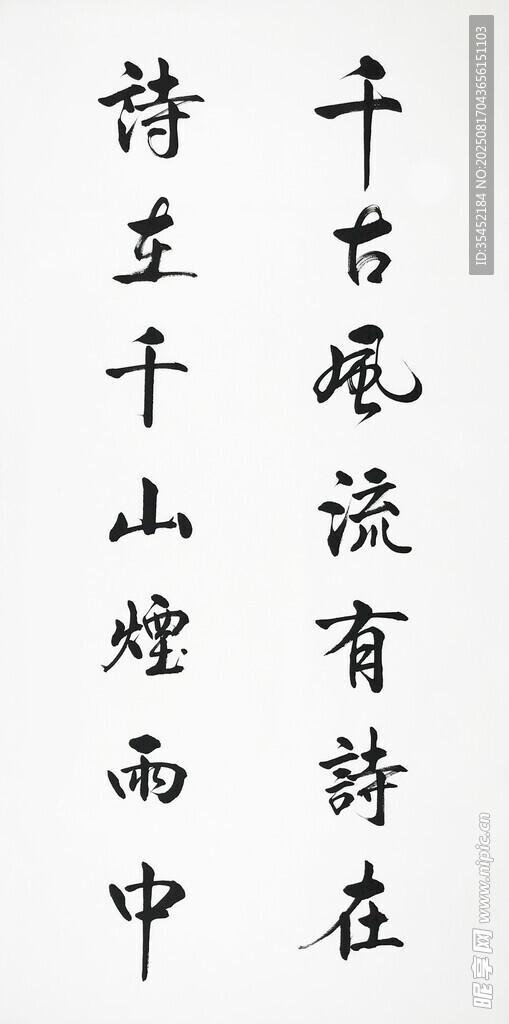 千古風流有詩在
詩在千山煙雨中
ID:35452184 NO:20250817043656151103
昵享网 www.nipic.cn